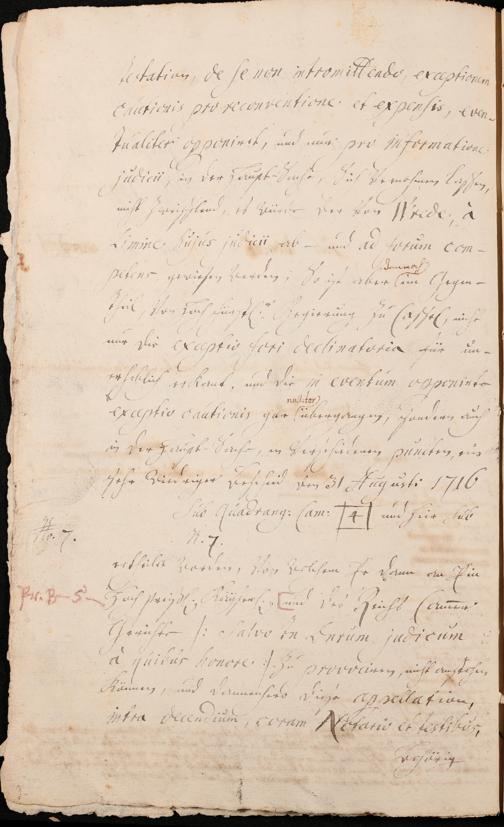 testation, de se non intromittendo, exceptionem
cautionis pro reconventione et expensis, even-
tualiter opponiret, und nur pro informatione
judicii, in der Haupt-Sache, sich vernehmen lassen,
nicht zweiflend, es würde der von Wrede, à
limine hujus judicii ab- und ad forum com-
petens gewiesen werden; So ist aber dennoch im Gegen-
theil, von Hoch Fürstl. Regierung zu Cassel, nicht
nur die exceptio fori declinatoria für un-
erheblich erkant, und die in eventum opponirte
exceptio cautionis gar nulliter übergangen, sondern auch
in der Haupt-Sache, in verschiedenen puncten, ein
sehr wiedriger Bescheid den 31 Augusti 1716
Sub Quadrang: Cam: 4 und hier sub
No. 7. N. 7.
ertheilet worden, von welchem Er dann an Ein
Hoch preißl. Kayserl. und des Reichs Cammer
Gericht /: Salvo in Eorum judicum
à quibus honore :/ zu provociren, nicht
können, und dannenhero diese appellation,
intra decendium, coram Notario et testibus,
behörig